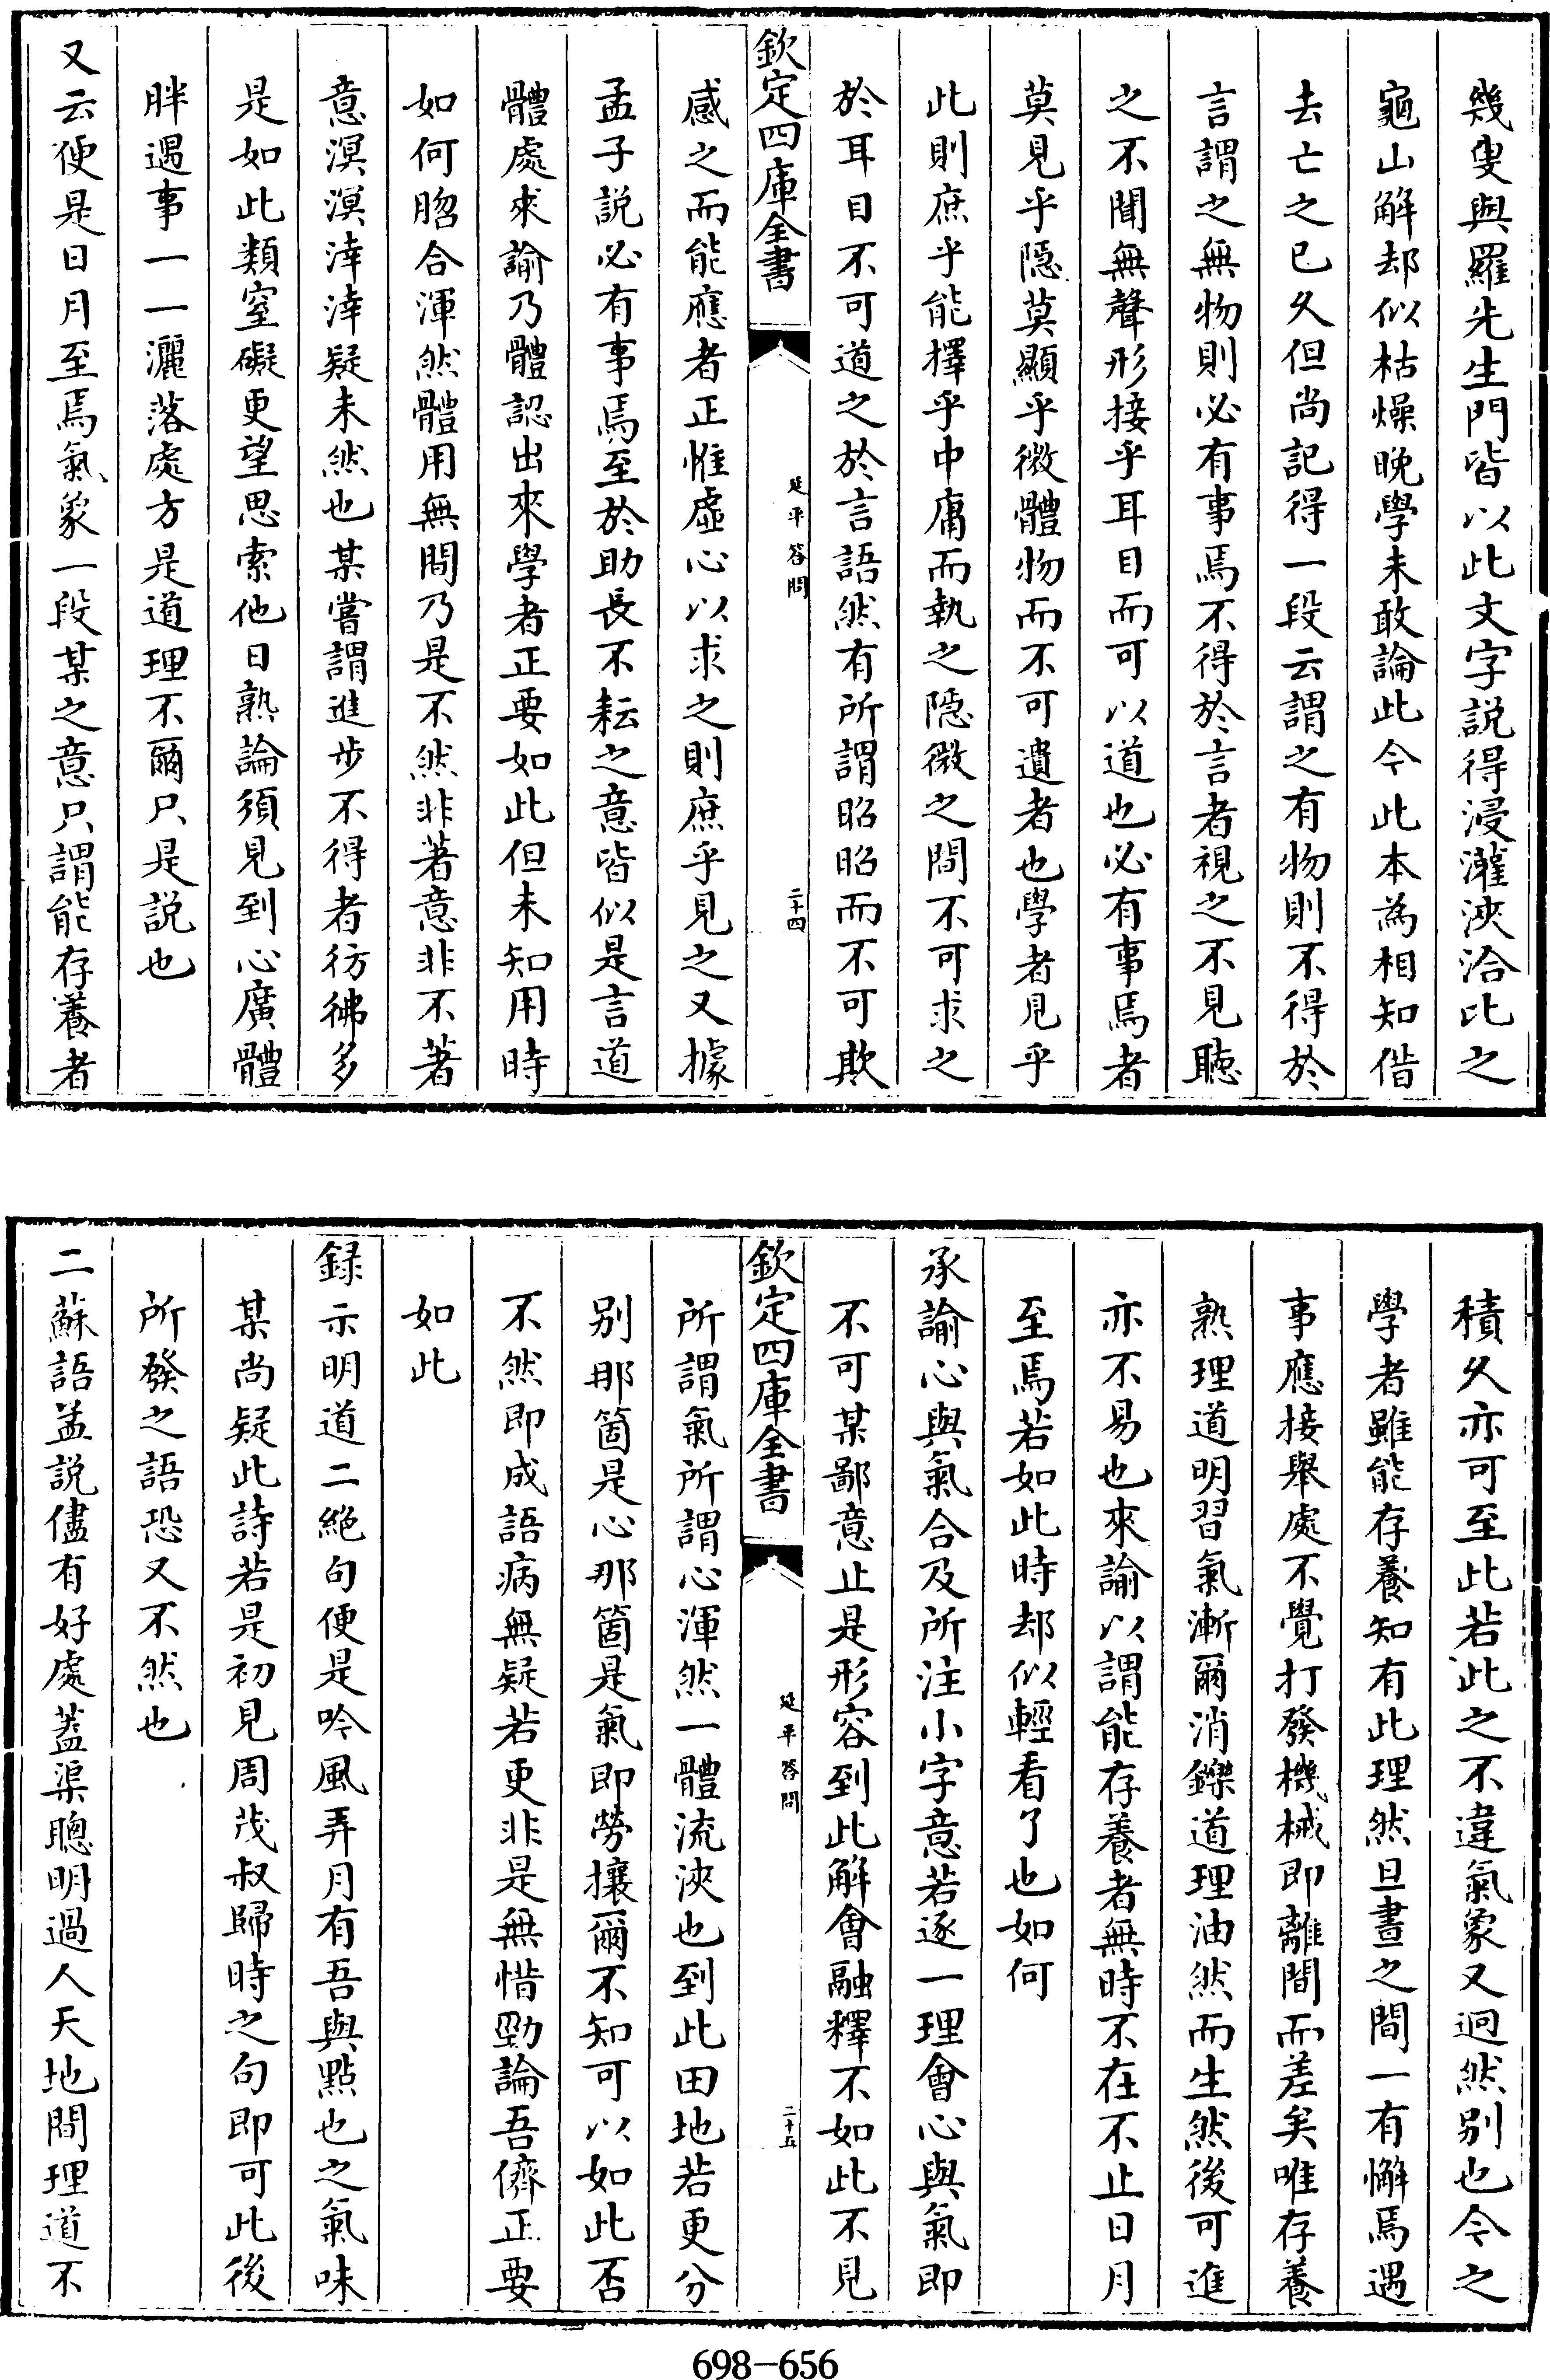 幾叟與羅先生門皆以此文字説得浸灌浹洽比之
龜山解却似枯燥晚學未敢論此今此本為相知借
去亡之已久但尚記得一段云謂之有物則不得於
言謂之無物則必有事焉不得於言者視之不見聽
之不聞無聲形接乎耳目而可以道也必有事焉者
莫見乎隱莫顯乎微體物而不可遺者也學者見乎
此則庶乎能擇乎中庸而執之隱微之間不可求之
於耳目不可道之於言語然有所謂昭昭而不可欺
欽定四庫全書
延平答問
二十四
感之而能應者正惟虛心以求之則庶乎見之又據
孟子説必有事焉至於助長不耘之意皆似是言道
體處來諭乃體認出來學者正要如此但未知用時
如何脗合渾然體用無間乃是不然非著意非不著
意溟溟涬涬疑未然也某嘗謂進步不得者彷彿多
是如此類窒礙更望思索他日熟論須見到心廣體
胖遇事一一灑落處方是道理不爾只是説也
又云便是日月至焉氣象一段某之意只謂能存養者
積久亦可至此若此之不違氣象又迥然别也今之
學者雖能存養知有此理然旦晝之間一有懈焉遇
事應接舉處不覺打發機械即離間而差矣唯存養
熟理道明習氣漸爾消鑠道理油然而生然後可進
亦不易也來諭以謂能存養者無時不在不止日月
至焉若如此時却似輕看了也如何
承諭心與氣合及所注小字意若逐一理會心與氣即
不可某鄙意止是形容到此解會融釋不如此不見
欽定四庫全書
延平答問
二十五
所謂氣所謂心渾然一體流浹也到此田地若更分
别那箇是心那箇是氣即勞攘爾不知可以如此否
不然即成語病無疑若更非是無惜勁論吾儕正要
如此
録示明道二絶句便是吟風弄月有吾與點也之氣味
某尚疑此詩若是初見周茂叔歸時之句即可此後
所發之語恐又不然也
二蘇語孟説儘有好處蓋渠聰明過人天地間理道不
698-656